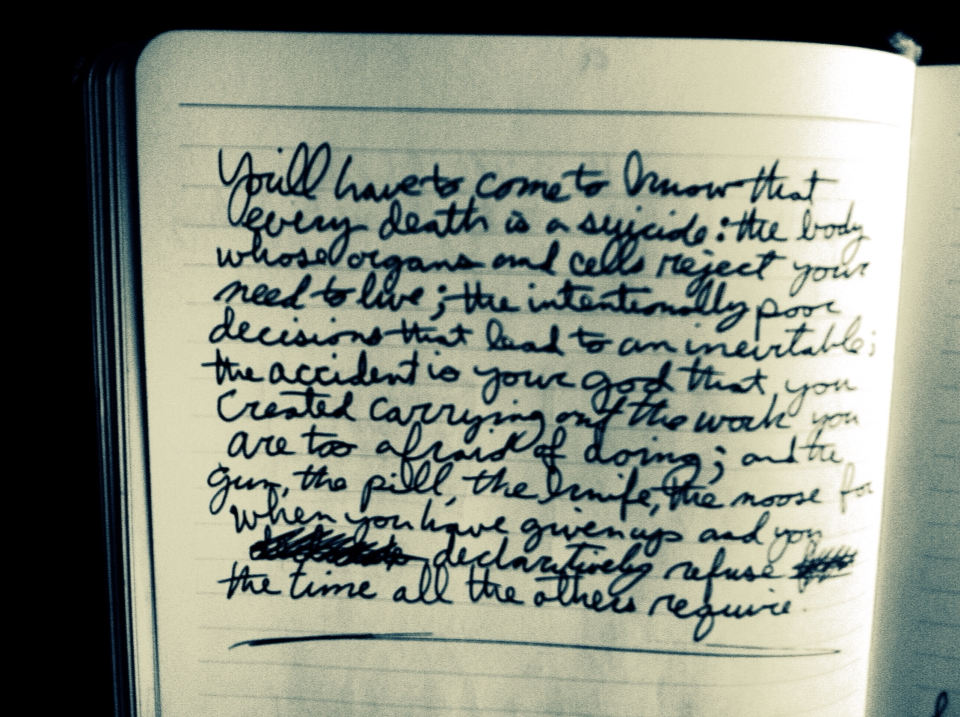 You'll have to come to know that
every death is a suicide: the body
whose organs and cells reject your
need to live; the intentionally poor
decisions that lead to an inevitable;
the accident is your god that you
created carrying out the work you
are too afraid of doing; and the
gun, the pill, the knife, the noose for
when you have given up and you
declaritively refuse
the time all the others require.